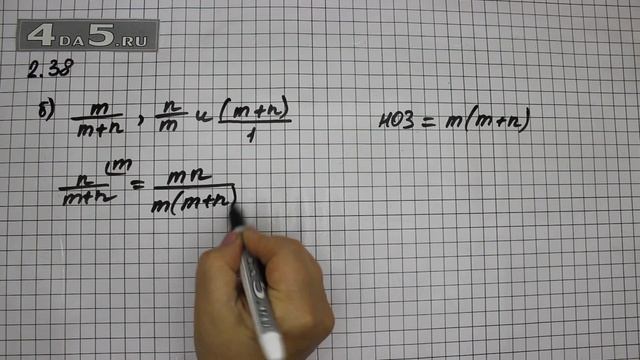 4DA5.RU
2.38
б) m/(m+n), n/m и (m+n)/1
НОЗ = m(m+n)
n/(m+n) ⌊m = mn/(m(m+n)